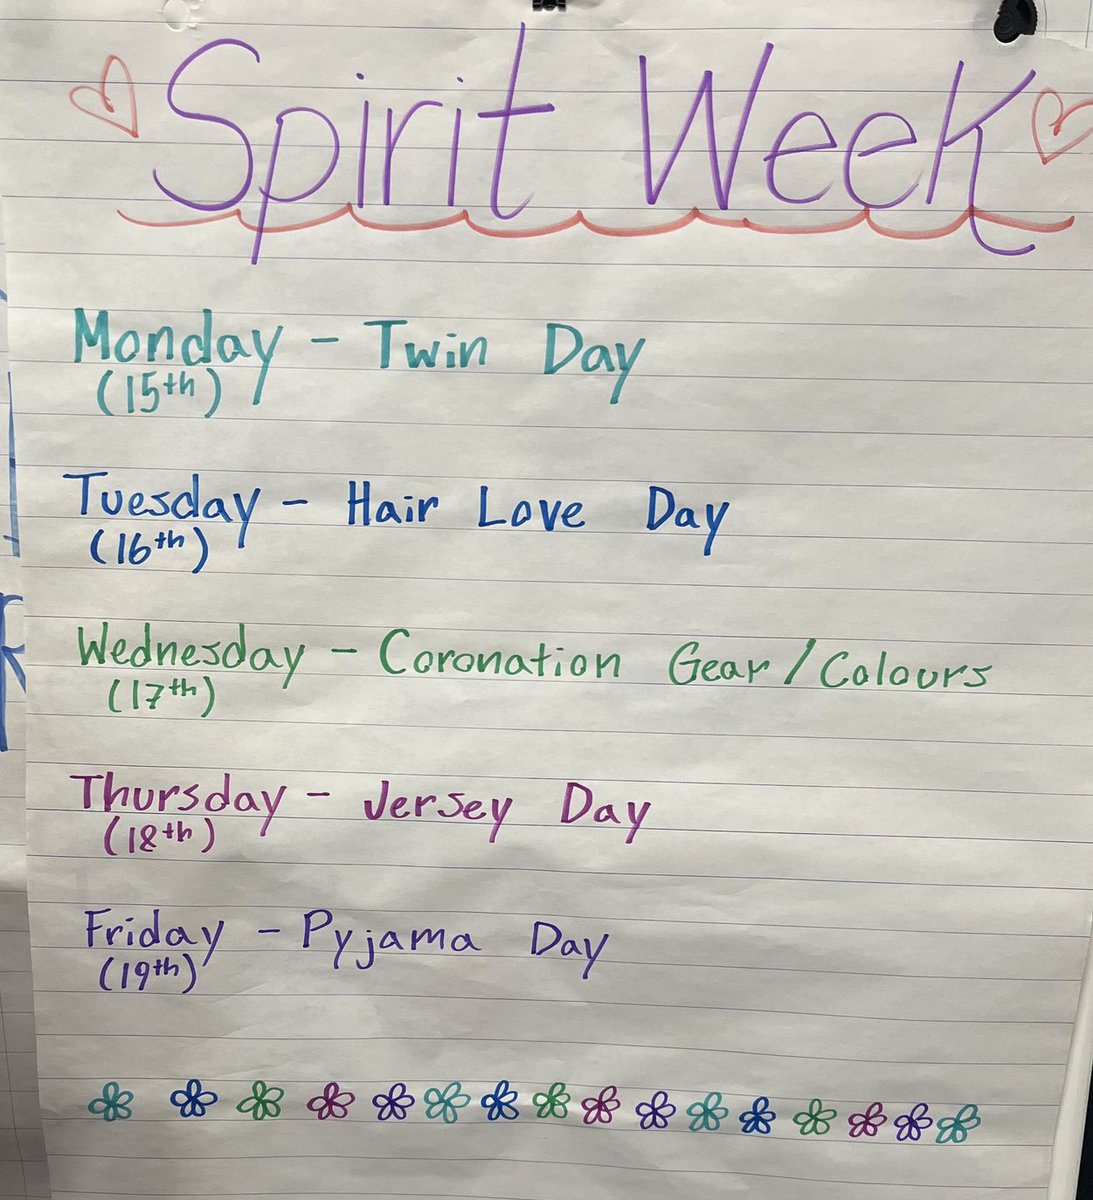 Spirit Week
Monday - Twin Day
(15th)
Tuesday - Hair Love Day
(16th)
Wednesday - Coronation Gear / Colours
(17th)
Thursday - Jersey Day
(18th)
Friday - Pyjama Day
(19th)